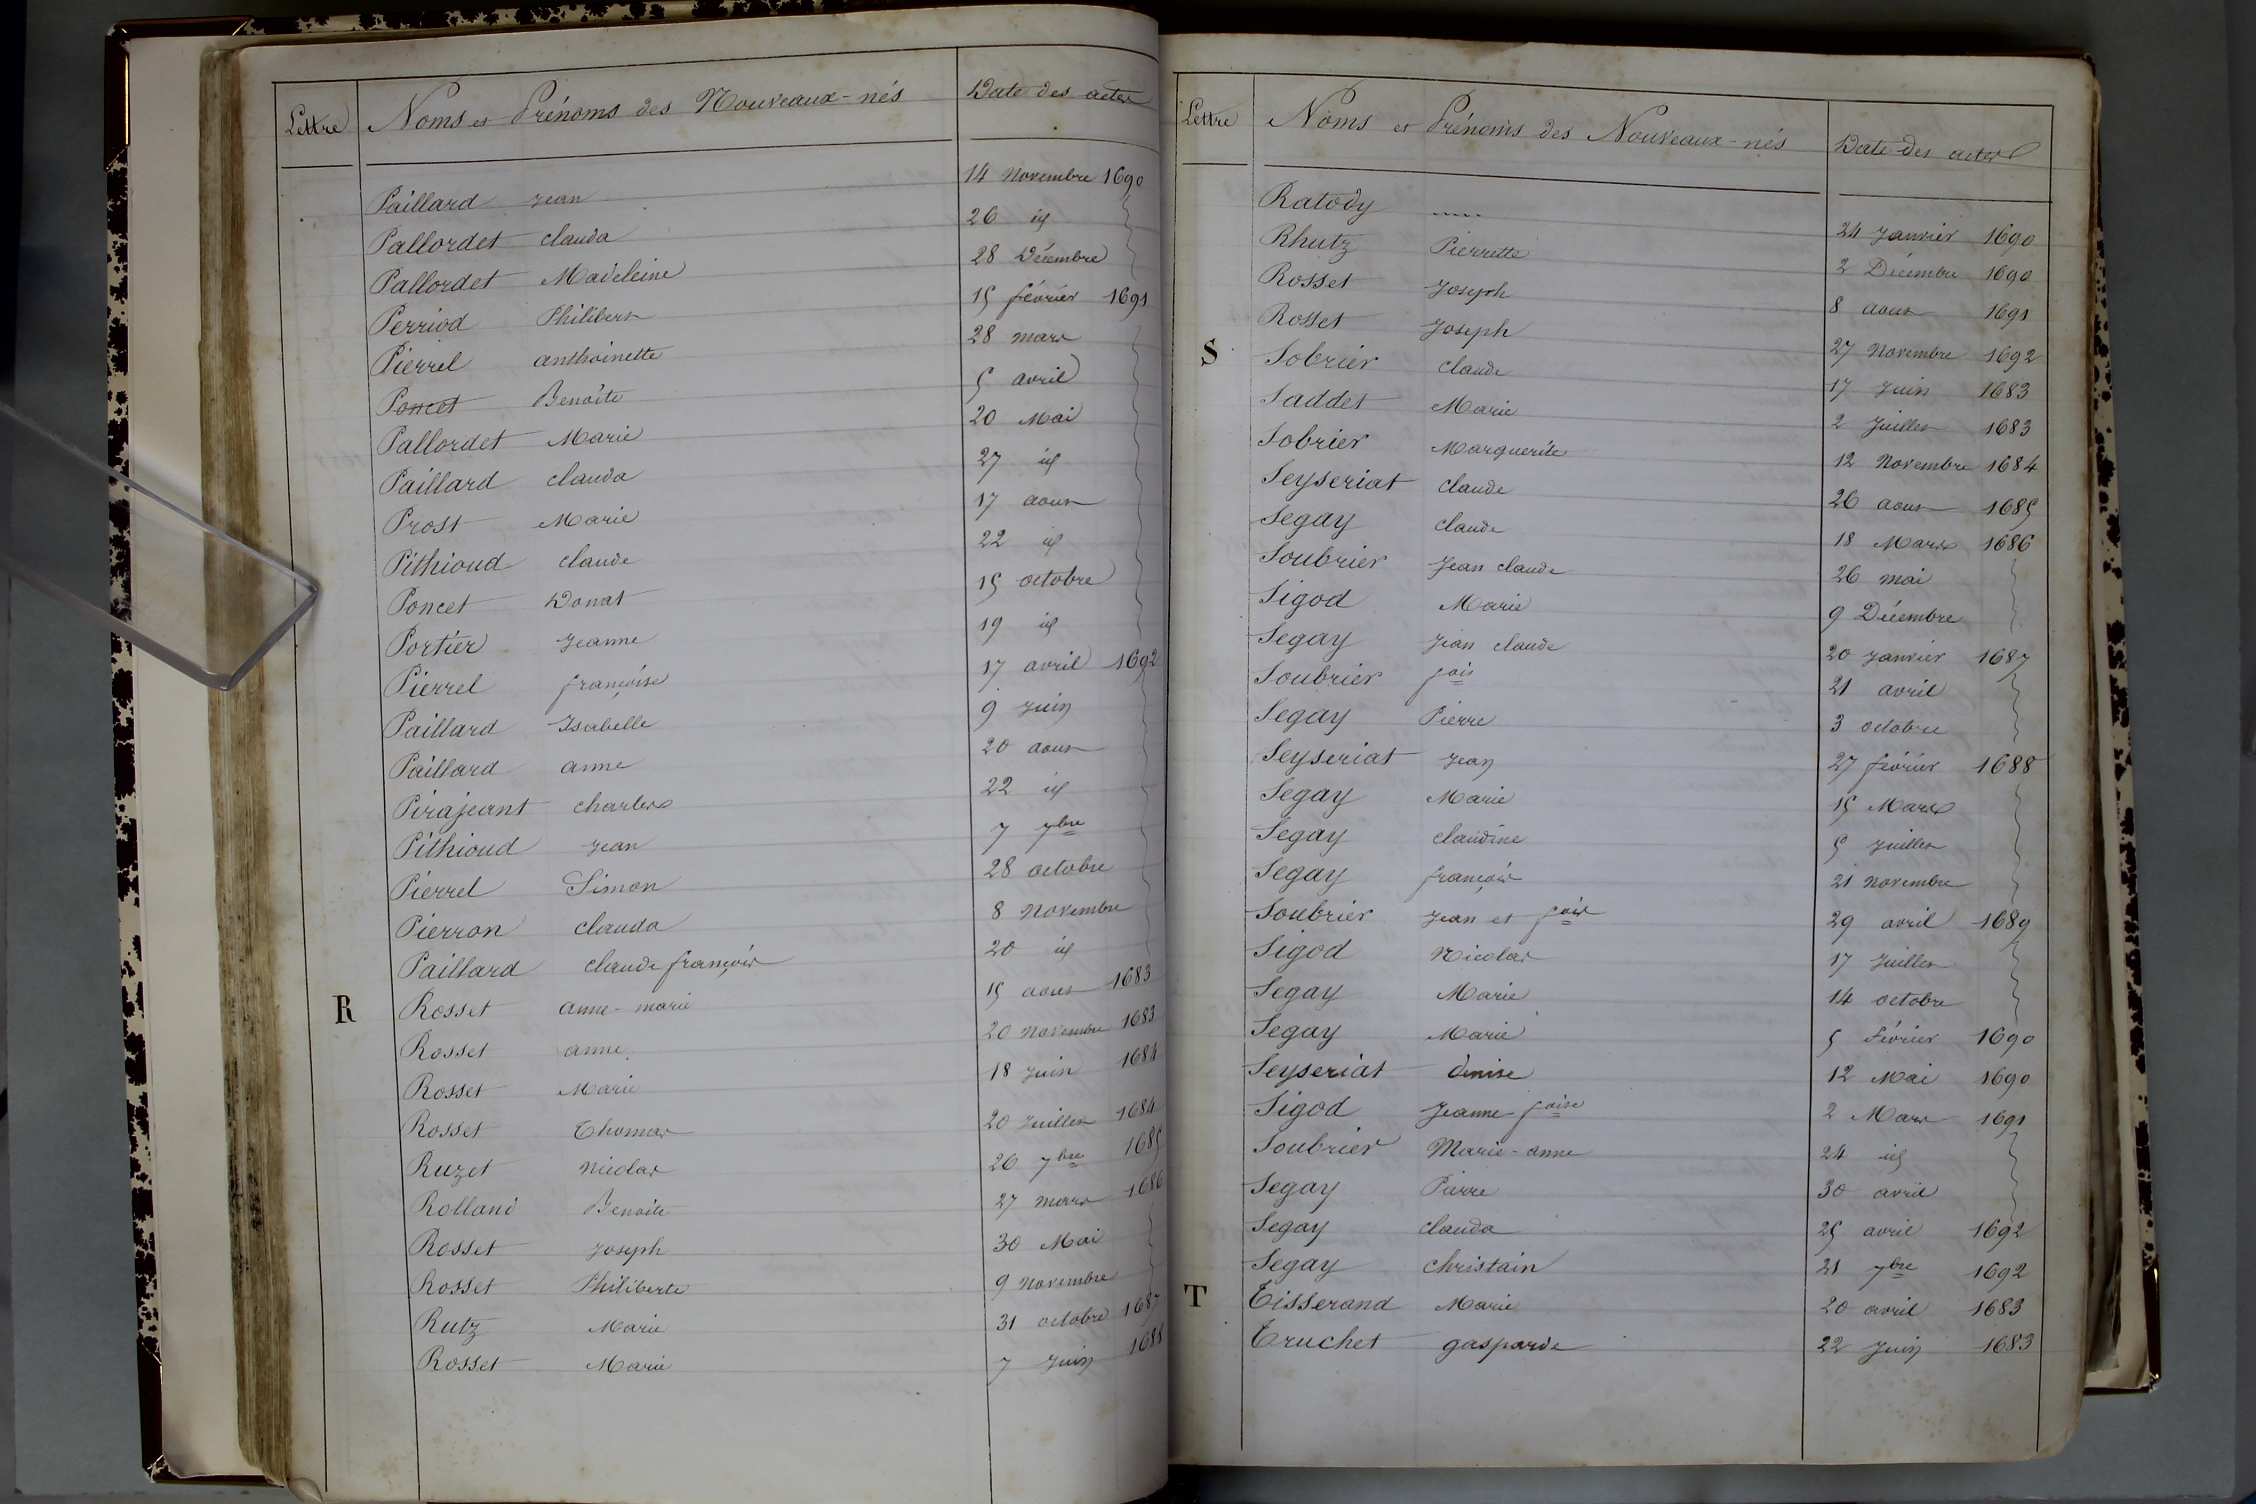 Lettre Noms et Prénoms des Nouveaux-nés Date des actes
Paillard Jean 14 Novembre 1690
Pallordet clauda 26 id
Pallordet Madeleine 28 Décembre
Perriod Philibert 15 février 1691
Pierrel anthoinette 28 mars
Poncet Benoite 5 avril
Pallordet Marie 20 Mai
Paillard clauda 27 id
Prost Marie 17 aout
Pithioud claude 22 id
Poncet Donat 15 octobre
Portier Jeanne 19 id
Pierrel françoise 17 avril 1692
Paillard Isabelle 9 Juin
Paillard anne 20 aout
Pirajeant charles 22 id
Pithioud Jean 7 7bre
Pierrel Simon 28 octobre
Pierron clauda 8 Novembre
Paillard claude françois 20 id
R Rosset anne-marie 15 aout 1683
Rosset anne 20 Novembre 1683
Rosset Marie 18 Juin 1684
Rosset Thomas 20 Juillet 1684
Ruzet nicolas 26 7bre 1685
Rolland Benoite 27 mars 1686
Rosset Joseph 30 Mai
Rosset Philiberte 9 Novembre
Rutz Marie 31 octobre 1687
Rosset Marie 7 Juin 1688
Lettre Noms et Prénoms des Nouveaux-nés Date des actes
Ratody ..... 24 Janvier 1690
Rhutz Pierrette 2 Décembre 1690
Rosset Joseph 8 aout 1691
Rosset Joseph 27 Novembre 1692
S Sobrier claude 17 Juin 1683
Saddet Marie 2 Juillet 1683
Sobrier Marguerite 12 Novembre 1684
Seyseriat claude 26 aout 1685
Segay claude 18 Mars 1686
Soubrier Jean claude 26 mai
Sigod Marie 9 Décembre
Segay Jean claude 20 Janvier 1687
Soubrier fois 21 avril
Segay Pierre 3 octobre
Seyseriat Jean 27 février 1688
Segay Marie 15 Mars
Segay claudine 5 Juillet
Segay françois 21 Novembre
Soubrier Jean et fois 29 avril 1689
Sigod Nicolas 17 Juillet
Segay Marie 14 octobre
Segay Marie 5 Février 1690
Seyseriat denise 12 Mai 1690
Sigod Jeanne-foise 2 Mars 1691
Soubrier Marie-anne 24 id
Segay Pierre 30 avril
Segay clauda 25 avril 1692
Segay christain 21 7bre 1692
T Tisserand Marie 20 avril 1683
Truchet gasparde 22 Juin 1683